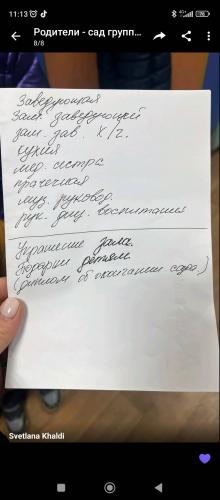 11:13
Родители - сад групп...
8/8
Заведующая
Зам. заведующей
зам. зав. х/ч.
кухня
мед. сестра
прачечная
муз. руковод.
рук. физ. воспитания
Украшение зала.
Подарки детям
(диплом об окончании сада)
Svetlana Khaldi